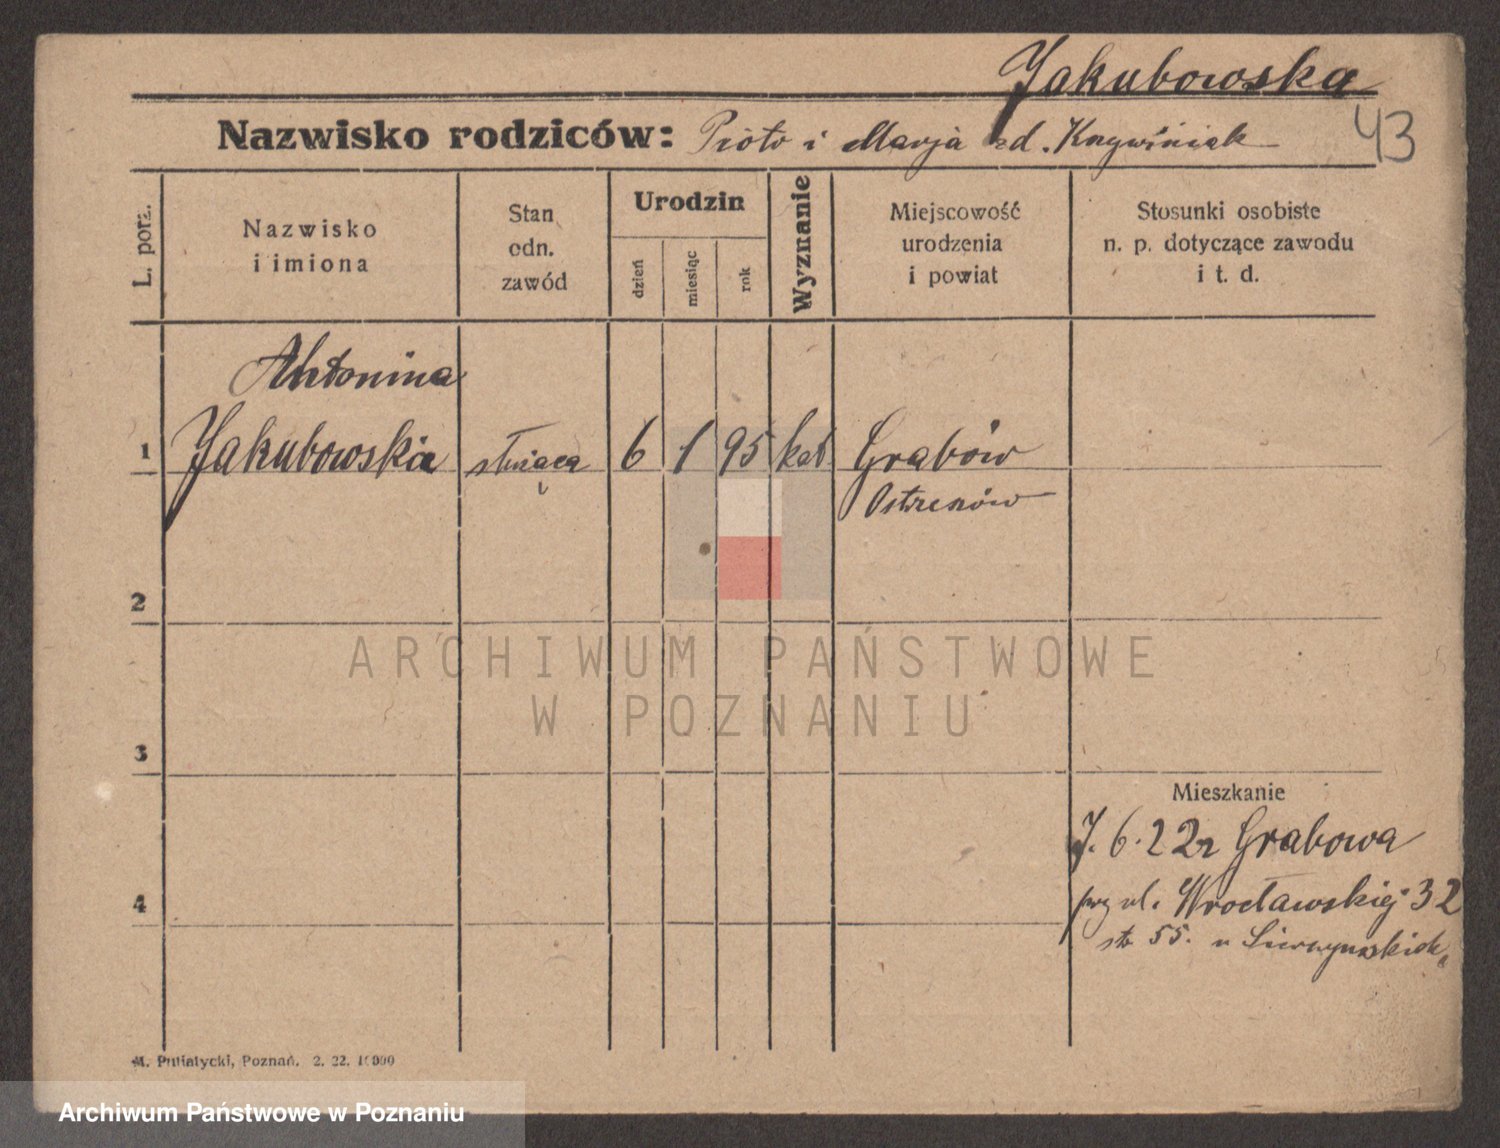 Jakubowska
43
Nazwisko rodziców: Piotr i Marja zd. Krzywiniak
L. porz.
Nazwisko
i imiona
Stan
odn.
zawód
Urodzin
dzień
miesiąc
rok
Wyznanie
Miejscowość
urodzenia
i powiat
Stosunki osobiste
n. p. dotyczące zawodu
i t. d.
Antonina
1 Jakubowska służąca 6 1 95 kat Grabów
Ostrzeszów
2
ARCHIWUM PAŃSTWOWE
W POZNANIU
3
Mieszkanie
6. 22 z Grabowa
4 przy ul. Wrocławskiej 32
str 55. u
M. Putiatycki, Poznań. 2. 22. 10000
Archiwum Państwowe w Poznaniu